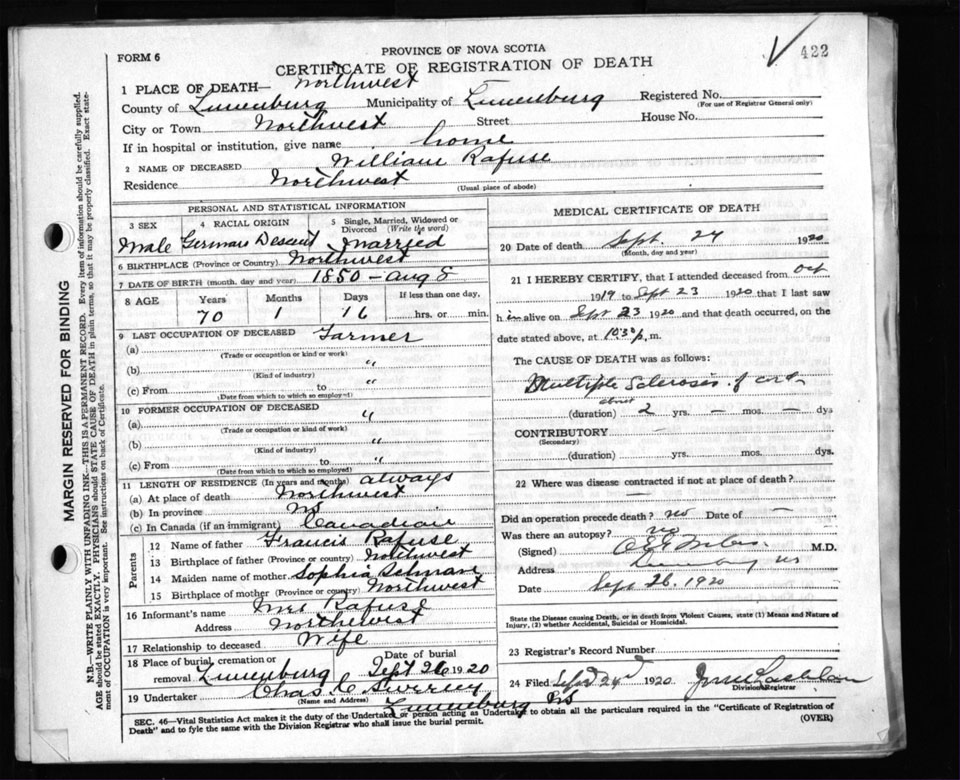 PROVINCE OF NOVA SCOTIA
FORM 6
422
CERTIFICATE OF REGISTRATION OF DEATH
1 PLACE OF DEATH— Northwest
County of Lunenburg Municipality of Lunenburg Registered No.
(For use of Registrar General only)
City or Town Northwest Street House No.
If in hospital or institution, give name home
2 NAME OF DECEASED William Rafuse
Residence Northwest
(Usual place of abode)
PERSONAL AND STATISTICAL INFORMATION
3 SEX 4 RACIAL ORIGIN 5 Single, Married, Widowed or
Divorced (Write the word)
Male German Descent Married
6 BIRTHPLACE (Province or Country) Northwest
7 DATE OF BIRTH (month, day, and year) 1850 – Aug 8
8 AGE Years Months Days If less than one day,
70 1 16 hrs. or min.
9 LAST OCCUPATION OF DECEASED Farmer
(a)
(Trade or occupation or kind or work)
(b) "
(Kind of industry)
(c) From to "
(Date from which to which so employed)
10 FORMER OCCUPATION OF DECEASED
(a) "
(Trade or occupation or kind of work)
(b) "
(Kind of industry)
(c) From to "
(Date from which to which so employed)
11 LENGTH OF RESIDENCE (In years and months) always
(a) At place of death Northwest
(b) In province NS
(c) In Canada (if an immigrant) Canadian
Parents
12 Name of father Francis Rafuse
13 Birthplace of father (Province or country) Northwest
14 Maiden name of mother Sophia
15 Birthplace of mother (Province or country) Northwest
16 Informant's name Mrs Rafuse
Address Northwest
17 Relationship to deceased Wife
18 Place of burial, cremation or Date of burial
removal Lunenburg Sept 26 1920
19 Undertaker Chas
(Name and Address) Lunenburg NS
MEDICAL CERTIFICATE OF DEATH
20 Date of death Sept. 24 1920
(Month, day and year)
21 I HEREBY CERTIFY, that I attended deceased from Oct
1919 to Sept 23 1920 that I last saw
h im alive on Sept 23 1920 and that death occurred, on the
date stated above, at p. m.
The CAUSE OF DEATH was as follows:
Multiple Sclerosis of cord
about
(duration) 2 yrs. — mos. — dys
CONTRIBUTORY
(Secondary)
(duration) yrs. mos. dys.
22 Where was disease contracted if not at place of death?
—
Did an operation precede death? no Date of —
Was there an autopsy? no
(Signed) M.D.
Address Lunenburg NS
Date Sept 26. 1920
State the Disease causing Death, or in death from Violent Causes, state (1) Means and Nature of
Injury, (2) whether Accidental, Suicidal or Homicidal.
23 Registrar's Record Number
24 Filed 1920
Division Registrar
SEC. 46—Vital Statistics Act makes it the duty of the Undertaker or person acting as Undertaker to obtain all the particulars required in the "Certificate of Registration of
Death" and to fyle the same with the Division Registrar who shall issue the burial permit.
(OVER)
MARGIN RESERVED FOR BINDING
N.B.—WRITE PLAINLY WITH UNFADING INK—THIS IS A PERMANENT RECORD. Every item of information should be carefully supplied.
AGE should be stated EXACTLY. PHYSICIANS should STATE CAUSE OF DEATH in plain terms, so that it may be properly classified. Exact state-
ment of OCCUPATION is very important. See instructions on back of Certificate.